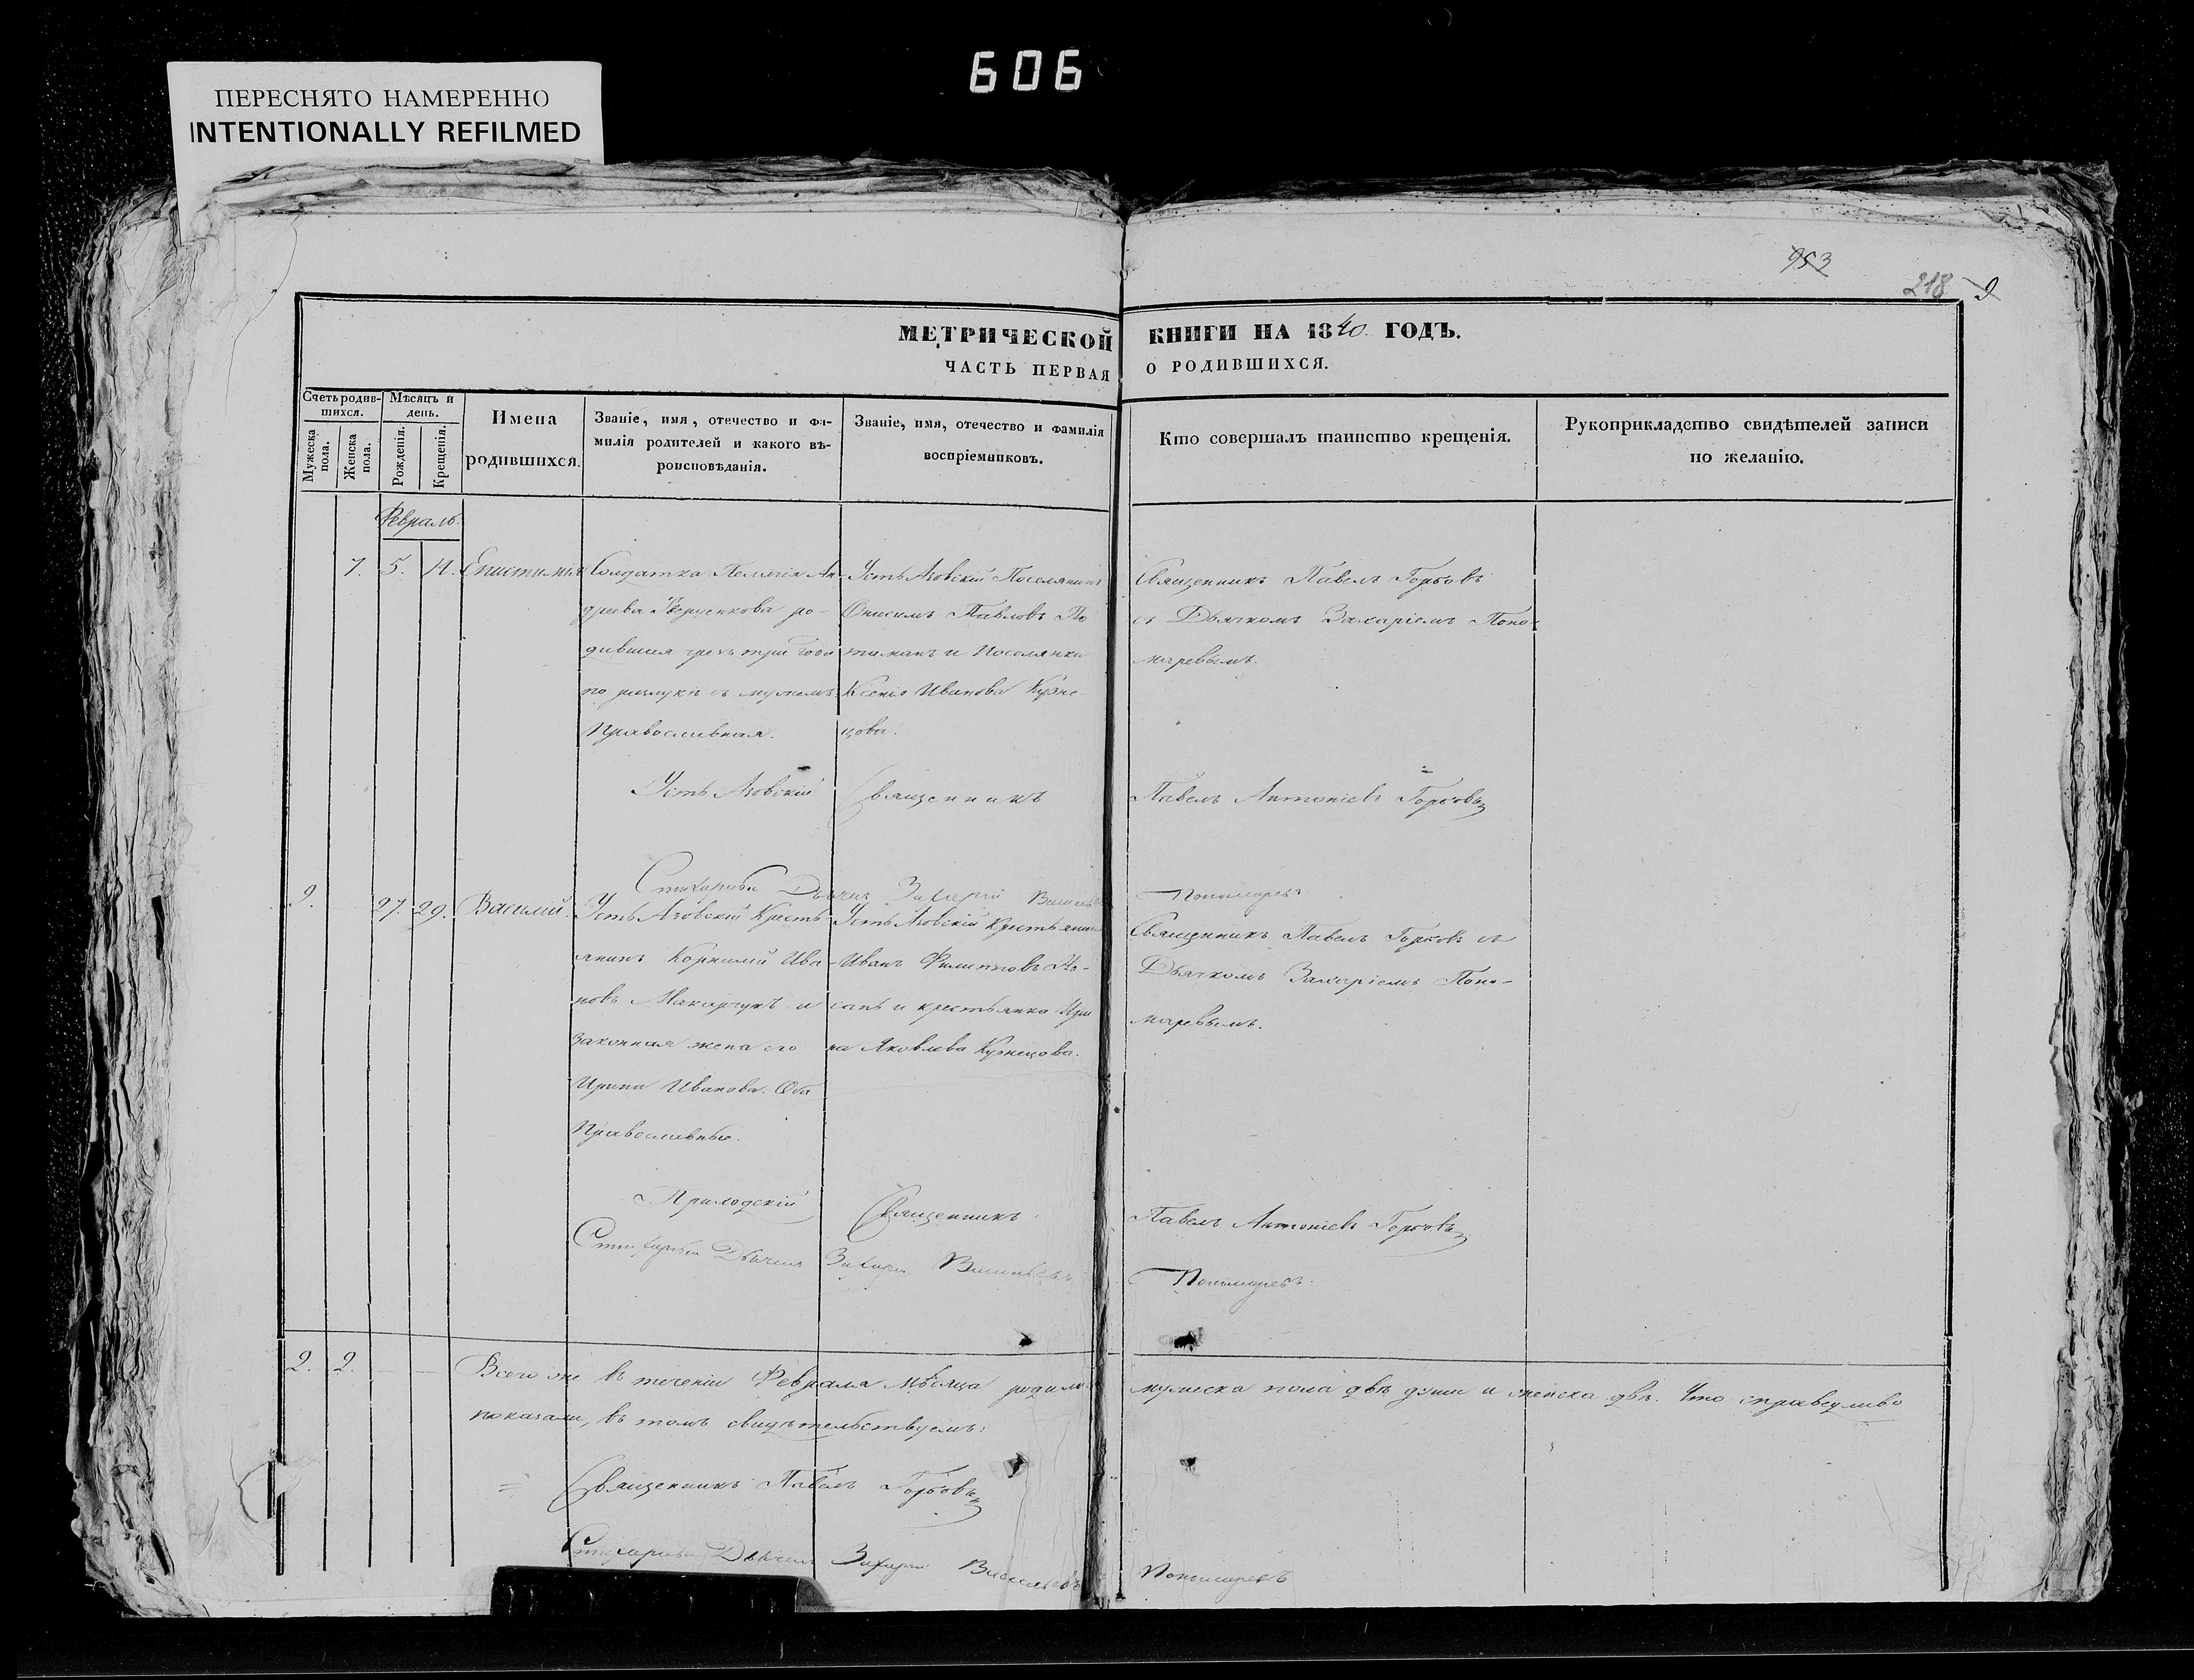 606
ПЕРЕСНЯТО НАМЕРЕННО
INTENTIONALLY REFILMED
953
218
9
МЕТРИЧЕСКОЙ КНИГИ НА 1840. ГОДЪ.
ЧАСТЬ ПЕРВАЯ О РОДИВШИХСЯ.
Счетъ родившихся.
Мужеска пола.
Женска пола.
Мѣсяцъ и день.
Рожденія.
Крещенія.
Имена родившихся.
Званіе, имя, отечество и фамилія родителей и какого вѣроисповѣданія.
Званіе, имя, отечество и фамилія воспріемниковъ.
Кто совершалъ таинство крещенія.
Рукоприкладство свидѣтелей записи по желанію.
Февраль.
7. 5. 11. Епистимія
Солдатка Пелагія Ан-
дреева родившая чрезъ три года
по разлукѣ съ мужемъ
Православная.
Усть Азовскій Поселянинъ
Онисимъ Павловъ По
таманъ и Поселянка
Ксенія Иванова Кузне
цова.
Священникъ Павелъ Горбовъ
съ Дьячкомъ Захаріемъ Поно-
маревымъ.
Усть Азовскій Священникъ Павелъ Антоніевъ Горбовъ
Стихарный Дьячекъ Захарій Васильевъ Пономаревъ
9. 27. 29. Василій.
Усть Азовскій Кресть-
янинъ Корнилій Ива-
новъ Макарчукъ и
законная жена его
Ирина Иванова. Оба
Православные.
Усть Азовскій Крестьянинъ
Иванъ Филипповъ
и крестьянка Ири
на Яковлева Кузнецова.
Священникъ Павелъ Горбовъ съ
Дьячкомъ Захаріемъ Поно-
маревымъ.
Приходскій Священникъ Павелъ Антоніевъ Горбовъ
Стихарный Дьячекъ Захарій Васильевъ Пономаревъ.
2. 2. Всего же въ теченіи Февраля мѣсяца родилось мужеска пола двѣ души и женска двѣ. Что справедливо
показали, въ томъ свидѣтельствуемъ:
Священникъ Павелъ Горбовъ
Стихарный Дьячекъ Захарій Васильевъ Пономаревъ